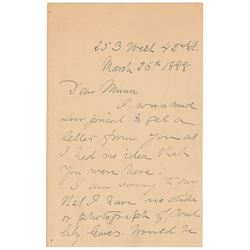 253 West 42nd St.
March 26th 1888
Dear Munn
I was much
surprised to get a
letter from you as
I had no idea that
you were here.
I am sorry to say
that I have no
or photograph of
lily leaves. Would be